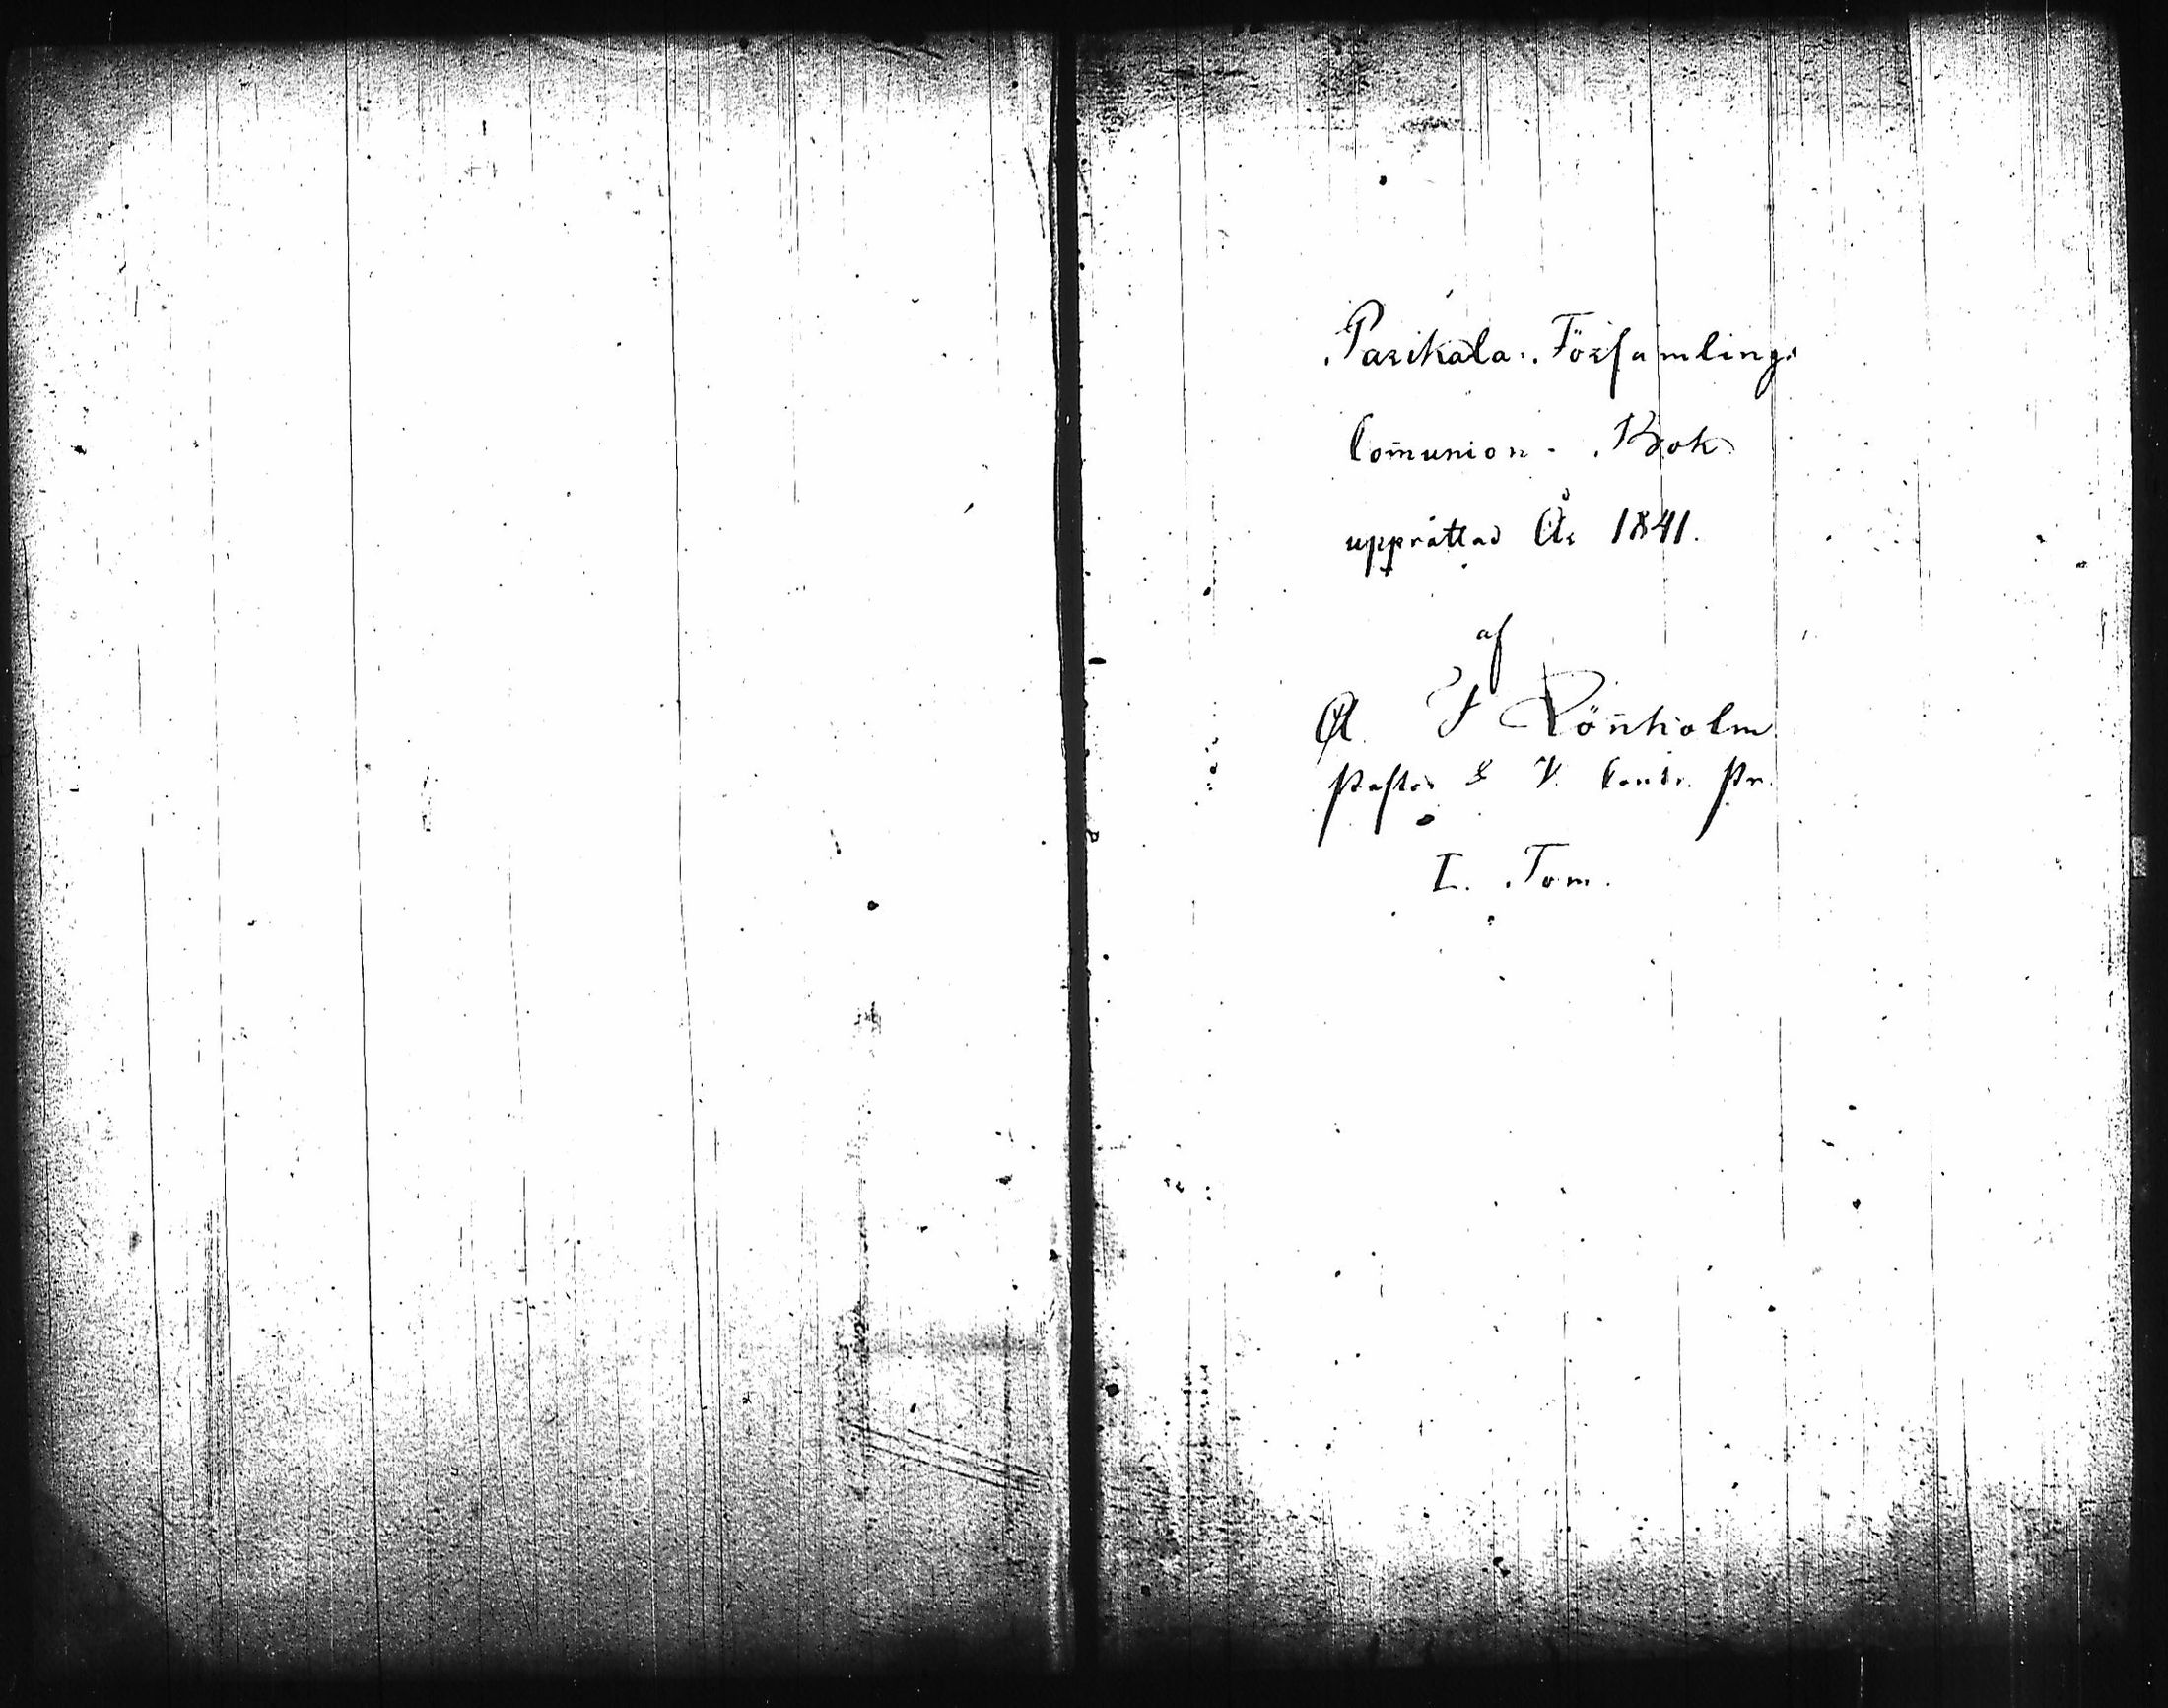 Parikala Församlings
Com̄union - Bok
upprättad År 1841.
af
A J Rön̄holm
Pastor & V. Contr. Pr.
I. Tom.